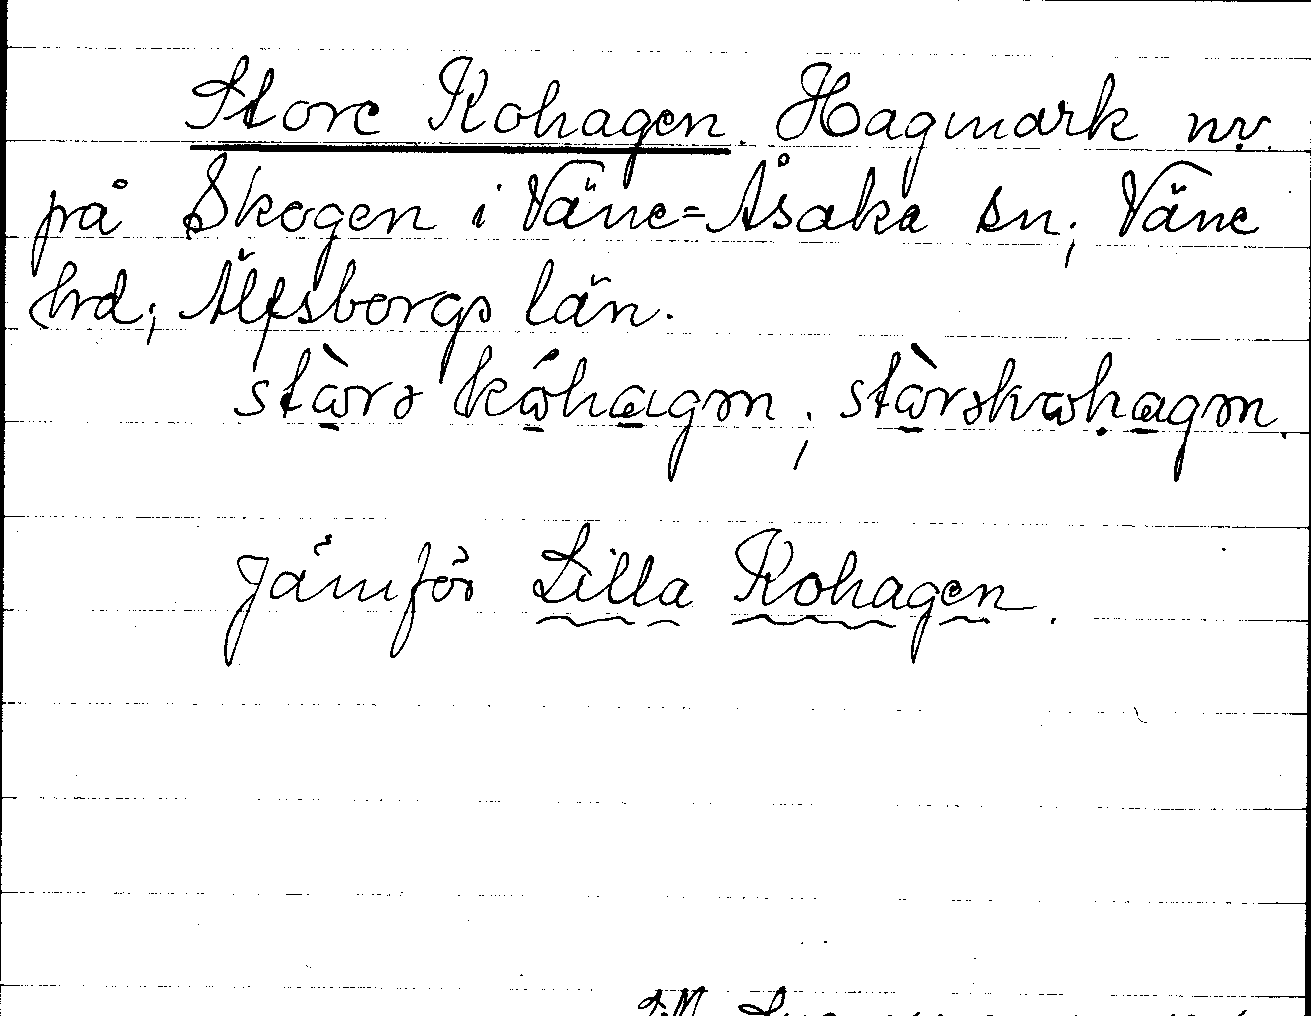 Store Kohagen. Hagmark nv.
på Skogen i Väne=Åsaka sn; Väne
hrd; Älfsborgs län.
stɷ̀rə kɷ́hagən; stɷ̀rəkɷhagən.
Jämför Lilla Kohagen.